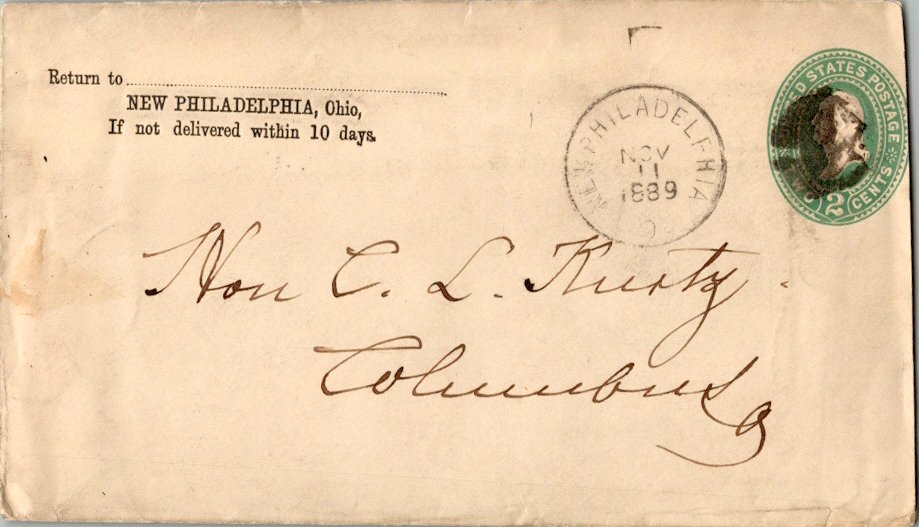 Return to
NEW PHILADELPHIA, Ohio,
If not delivered within 10 days.
NEW PHILADELPHIA
NOV
11
1889
O
STATES POSTAGE
2 CENTS
Hon C. L. Kurtz.
Columbus
O